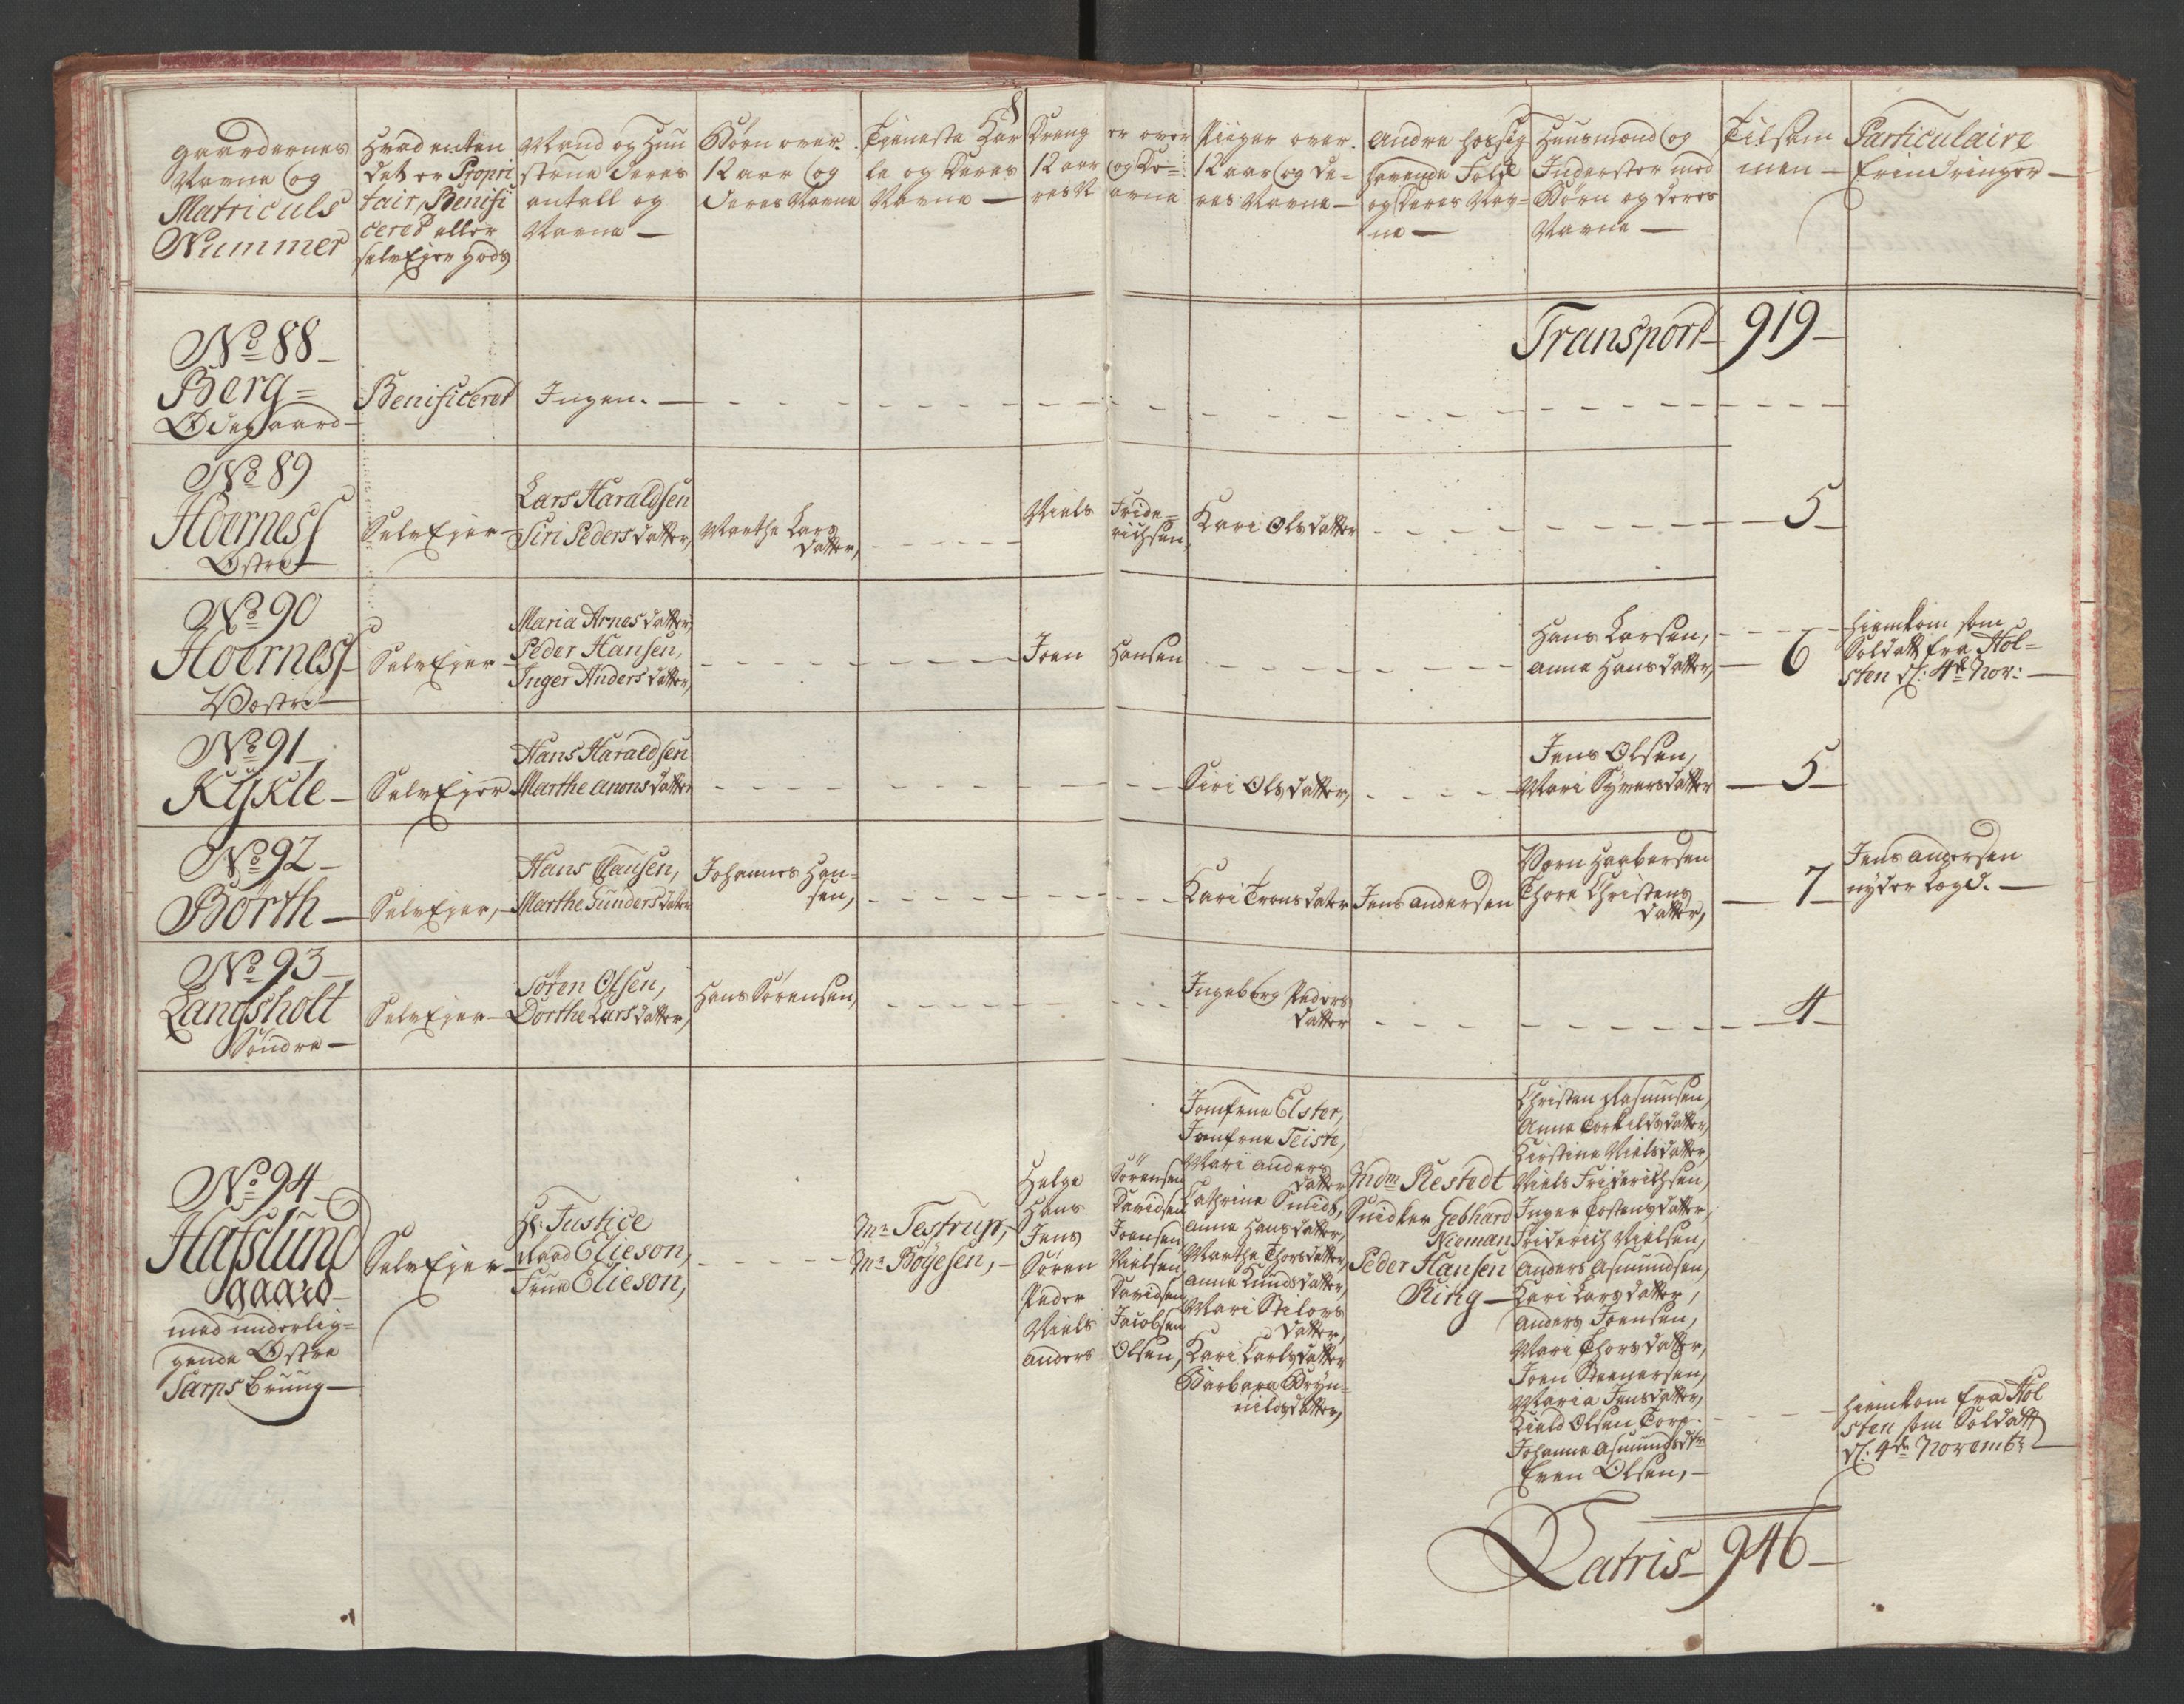 Gaardernes
Navne og
Matriculs
Nummer
Hvad enten
det er Propri
tair, Benifi
ceret eller
selvEjer Gods
Mand og Hu
strue deres
antall og
Navne —
Børn over
12 aar og
deres Navne
Tieneste Kar
le og deres
Navne —
Dreng er over
12 aar og De=
res N avne
Piiger over
12 aar og de=
res Navne —
Andre hos sig
havende Folk
og deres Nav=
ne —
Huusmænd og
Inderster med
Børn og deres
Navne —
Tilsam
men —
Particulaire
Erindringer —
Transport — 919 —
No 88 —
Berg =
Ødegaard —
Benificeret
Ingen. —
No 89
Hoerness
Østre —
SelvEjer —
Lars Haraldsen
Siri Pedersdatter,
Marthe Lars
datter,
Niels Fride=
richsen,
Kari Olsdatter
— 5 —
No 90
Hoerness
Væstre —
SelvEjer —
Maria Arnesdatter,
Peder Hansen,
Inger Andersdatter,
Joen Hansen
Hans Larsen,
Anne Hansdatter,
— 6
Hiemkom som
Soldatt fra Hol=
sten d: 4de Nov: —
No 91 —
Kykle —
SelvEjer
Hans Haraldsen
Marthe Amonsdatter
Siri Olsdatter,
Jens Olsen,
Mari Symersdatter
— 5 —
No 92 —
Børth —
SelvEjer, —
Hans Clausen,
Marthe Gundersdater
Johannes Han=
sen,
Kari Tronsdater
Jens Andersen
Biørn Haabersen
Thore Christens
datter,
— 7 —
Jens Andersen
nyder Lægd. —
No 93 —
Langsholt
Søndre —
SelvEjer —
Søren Olsen,
Dorthe Larsdatter,
Hans Sørensen,
Ingeborg Peders
datter
— 4 —
No 94 —
Hafslund
gaard —
med underlig=
gende Østre
Sarpsbruug —
SelvEjer —
Hr: Justice
Raad Elieson,
Frue Elieson,
Mr Testrup, —
Mr Boyesen, —
Helge Sørensen
Hans Davidsen
Jens Joensen,
Søren Nielsen
Peder Davidsen,
Niels Jacobsen
Anders Olsen,
Jomfrue Elster,
Jomfrue Teiste,
Mari Anders
datter
Cathrine Smids,
Anne Hansdatter,
Marthe Thorsdatter,
Anne Knudsdatter,
Mari
datter,
Kari Carlsdatter
Barbara Bryn=
nildsdatter,
Mdm Restedt
Snidker Gebhard
Nieman
Peder Hansen
Ring —
Christen Rasmusen,
Anne Torkildsdatter,
Kirstine Nielsdatter,
Niels Friderichsen,
Inger Torstensdatter,
Friderich Nielsen,
Anders Asmundsen,
Kari Larsdatter,
Anders Joensen,
Mari Thorsdatter,
Joen Steenersen,
Maria Jensdatter,
Kield Olsen Torp.
Johanne Asmundsdtr
Even Olsen, —
Hiemkom fra Hol
sten som Soldatt
d: 4de Novembr —
Latris — 946 —